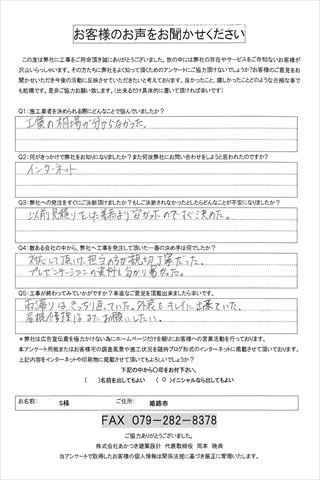 お客様のお声をお聞かせください
この度は弊社に工事をご用命頂き誠にありがとうございました。世の中には弊社の存在やサービスをご存知ないお客様が
沢山いらっしゃいます。その方たちに弊社をよく知って頂くためのアンケートにご協力頂けないでしょうか?お客様のご意見をお
聞かせいただき今後の活動に反映させていただきたいと考えております。良かったこと、嬉しかったことどのような些細な事で
も結構です。是非ご協力お願い致します。(出来るだけ具体的に書いて頂ければ幸いです)
Q1:施工業者を決められる際にどんなことで悩んでいましたか?
工賃の相場が分からなかった。
Q2:何がきっかけで弊社をお知りになりましたか?また何故弊社にお問い合わせをしようと思われたのですか?
インターネット
Q3:弊社への発注をすぐにご決断頂けましたか?もしご決断されなかったとしたらどんなことが不安になりましたか?
以前見積りをした業者より安かったのですぐ決めた。
Q4:数ある会社の中から、弊社へ工事を発注して頂いた一番の決め手は何でしたか?
対応して頂いた担当の方が親切丁寧だった。
プレゼンテーションの資料も分かり易かった。
Q5:工事が終わってみていかがですか?率直なご意見を頂戴出来ましたら幸いです。
雨漏りはきっちり直っていた。外装もキレイに出来ていた。
屋根修理はまたお願いしたい。
*弊社は広告宣伝費を極力かけない為にホームページだけを頼りにお客様への営業活動を行っております。
本アンケート用紙またはお客様宅の調査風景や施工状況を随時ブログ形式のインターネットに掲載させて頂いております。
上記内容をインターネットや印刷物に掲載させて頂いてもよろしいでしょうか?
下記の中から〇印をお付下さい。
( )名前を出してもよい (○)イニシャルなら出してもよい
お名前: S様 ご住所: 姫路市
FAX 079-282-8378
ご協力ありがとうございました。
株式会社あかつき建築設計 代表取締役 岡本 暁典
当アンケートで取得したお客様の個人情報は関係法規に基づき厳正に管理いたします。